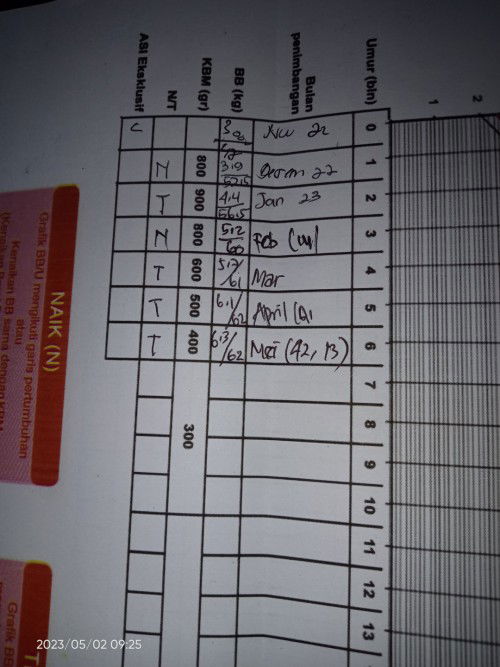 2
1
Umur (bln)
0
1
2
3
4
5
6
7
8
9
10
11
12
13
Bulan
penimbangan
Jan 23
Feb
Mar
April
Mei (42, 13)
BB (kg)
3,9
52,5
4,4
56,5
5,2
60
5,7/
61
6,1/
62
6,3
/62
KBM (gr)
800
900
800
600
500
400
300
N/T
N
T
N
T
T
T
ASI Eksklusif
NAIK (N)
Grafik BB/U mengikuti garis pertumbuhan
atau
Kenaikan BB sama dengan KBM
(Kenaikan
T
Grafik BB
2023/05/02 09:25